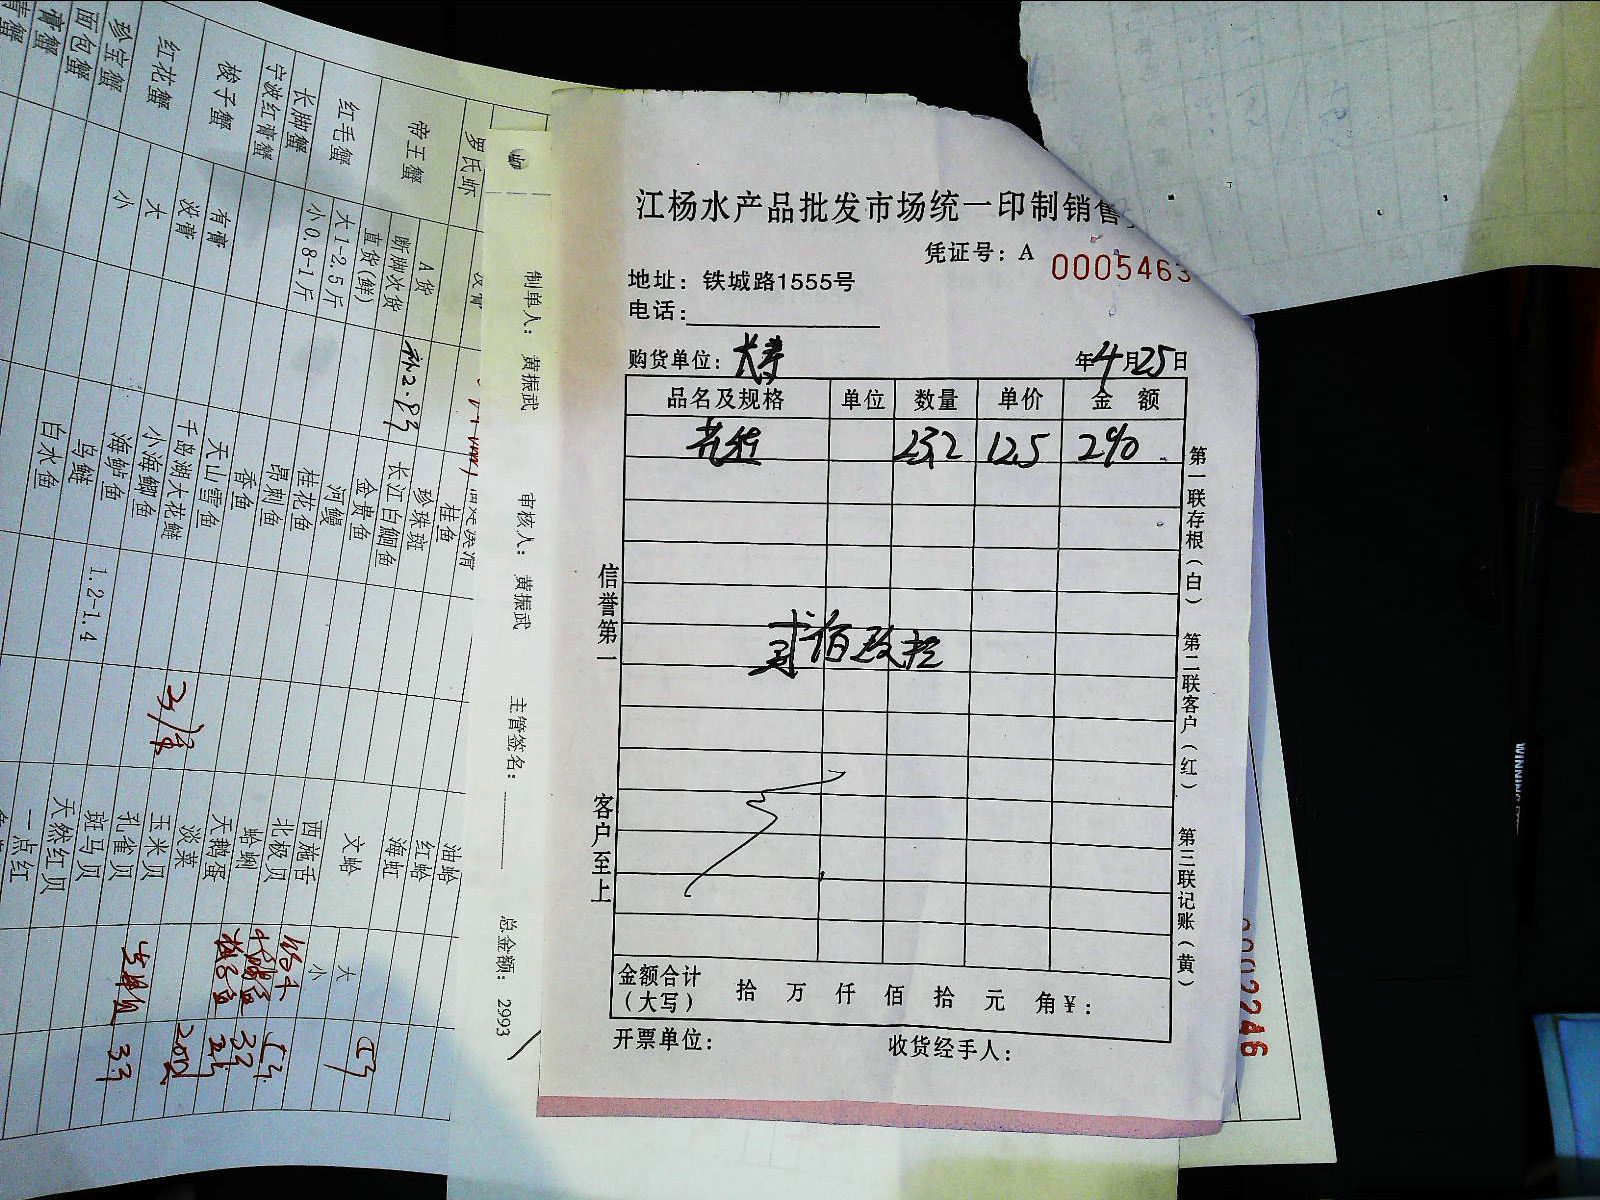 江杨水产品批发市场统一印制销售
凭证号：A 0005463
地址：铁城路1555号
电话：
购货单位： 年4月25日
品名及规格 单位 数量 单价 金 额
花蛤 23.2 12.5 290
贰佰玖拾
金额合计
（大写） 拾 万 仟 佰 拾 元 角 ¥：
开票单位： 收货经手人：
信誉第一 客户至上
第一联存根（白） 第二联客户（红） 第三联记账（黄）
制单人： 黄振武 审核人： 黄振武 主管签名： 总金额： 2993
罗氏虾
帝王蟹 A货
断脚次货
直货(鲜)
红毛蟹 大1-2.5斤
小0.8-1斤
长脚蟹
宁波红膏蟹
梭子蟹 有膏
没膏
红花蟹 大
小
珍宝蟹
面包蟹
膏蟹
桂鱼
珍珠斑
长江白鮰鱼
金贵鱼
河鳗
桂花鱼
昂刺鱼
香鱼
天山雪鱼
千岛湖大花鲢
小海鲫鱼
海鲈鱼 1.2-1.4
乌鲢
白水鱼
油蛤
红蛤
海虹
文蛤 大
小
西施舌
北极贝
蛤蜊
天鹅蛋
淡菜
玉米贝
孔雀贝
斑马贝
天然红贝
一点红
0002246
WINNING